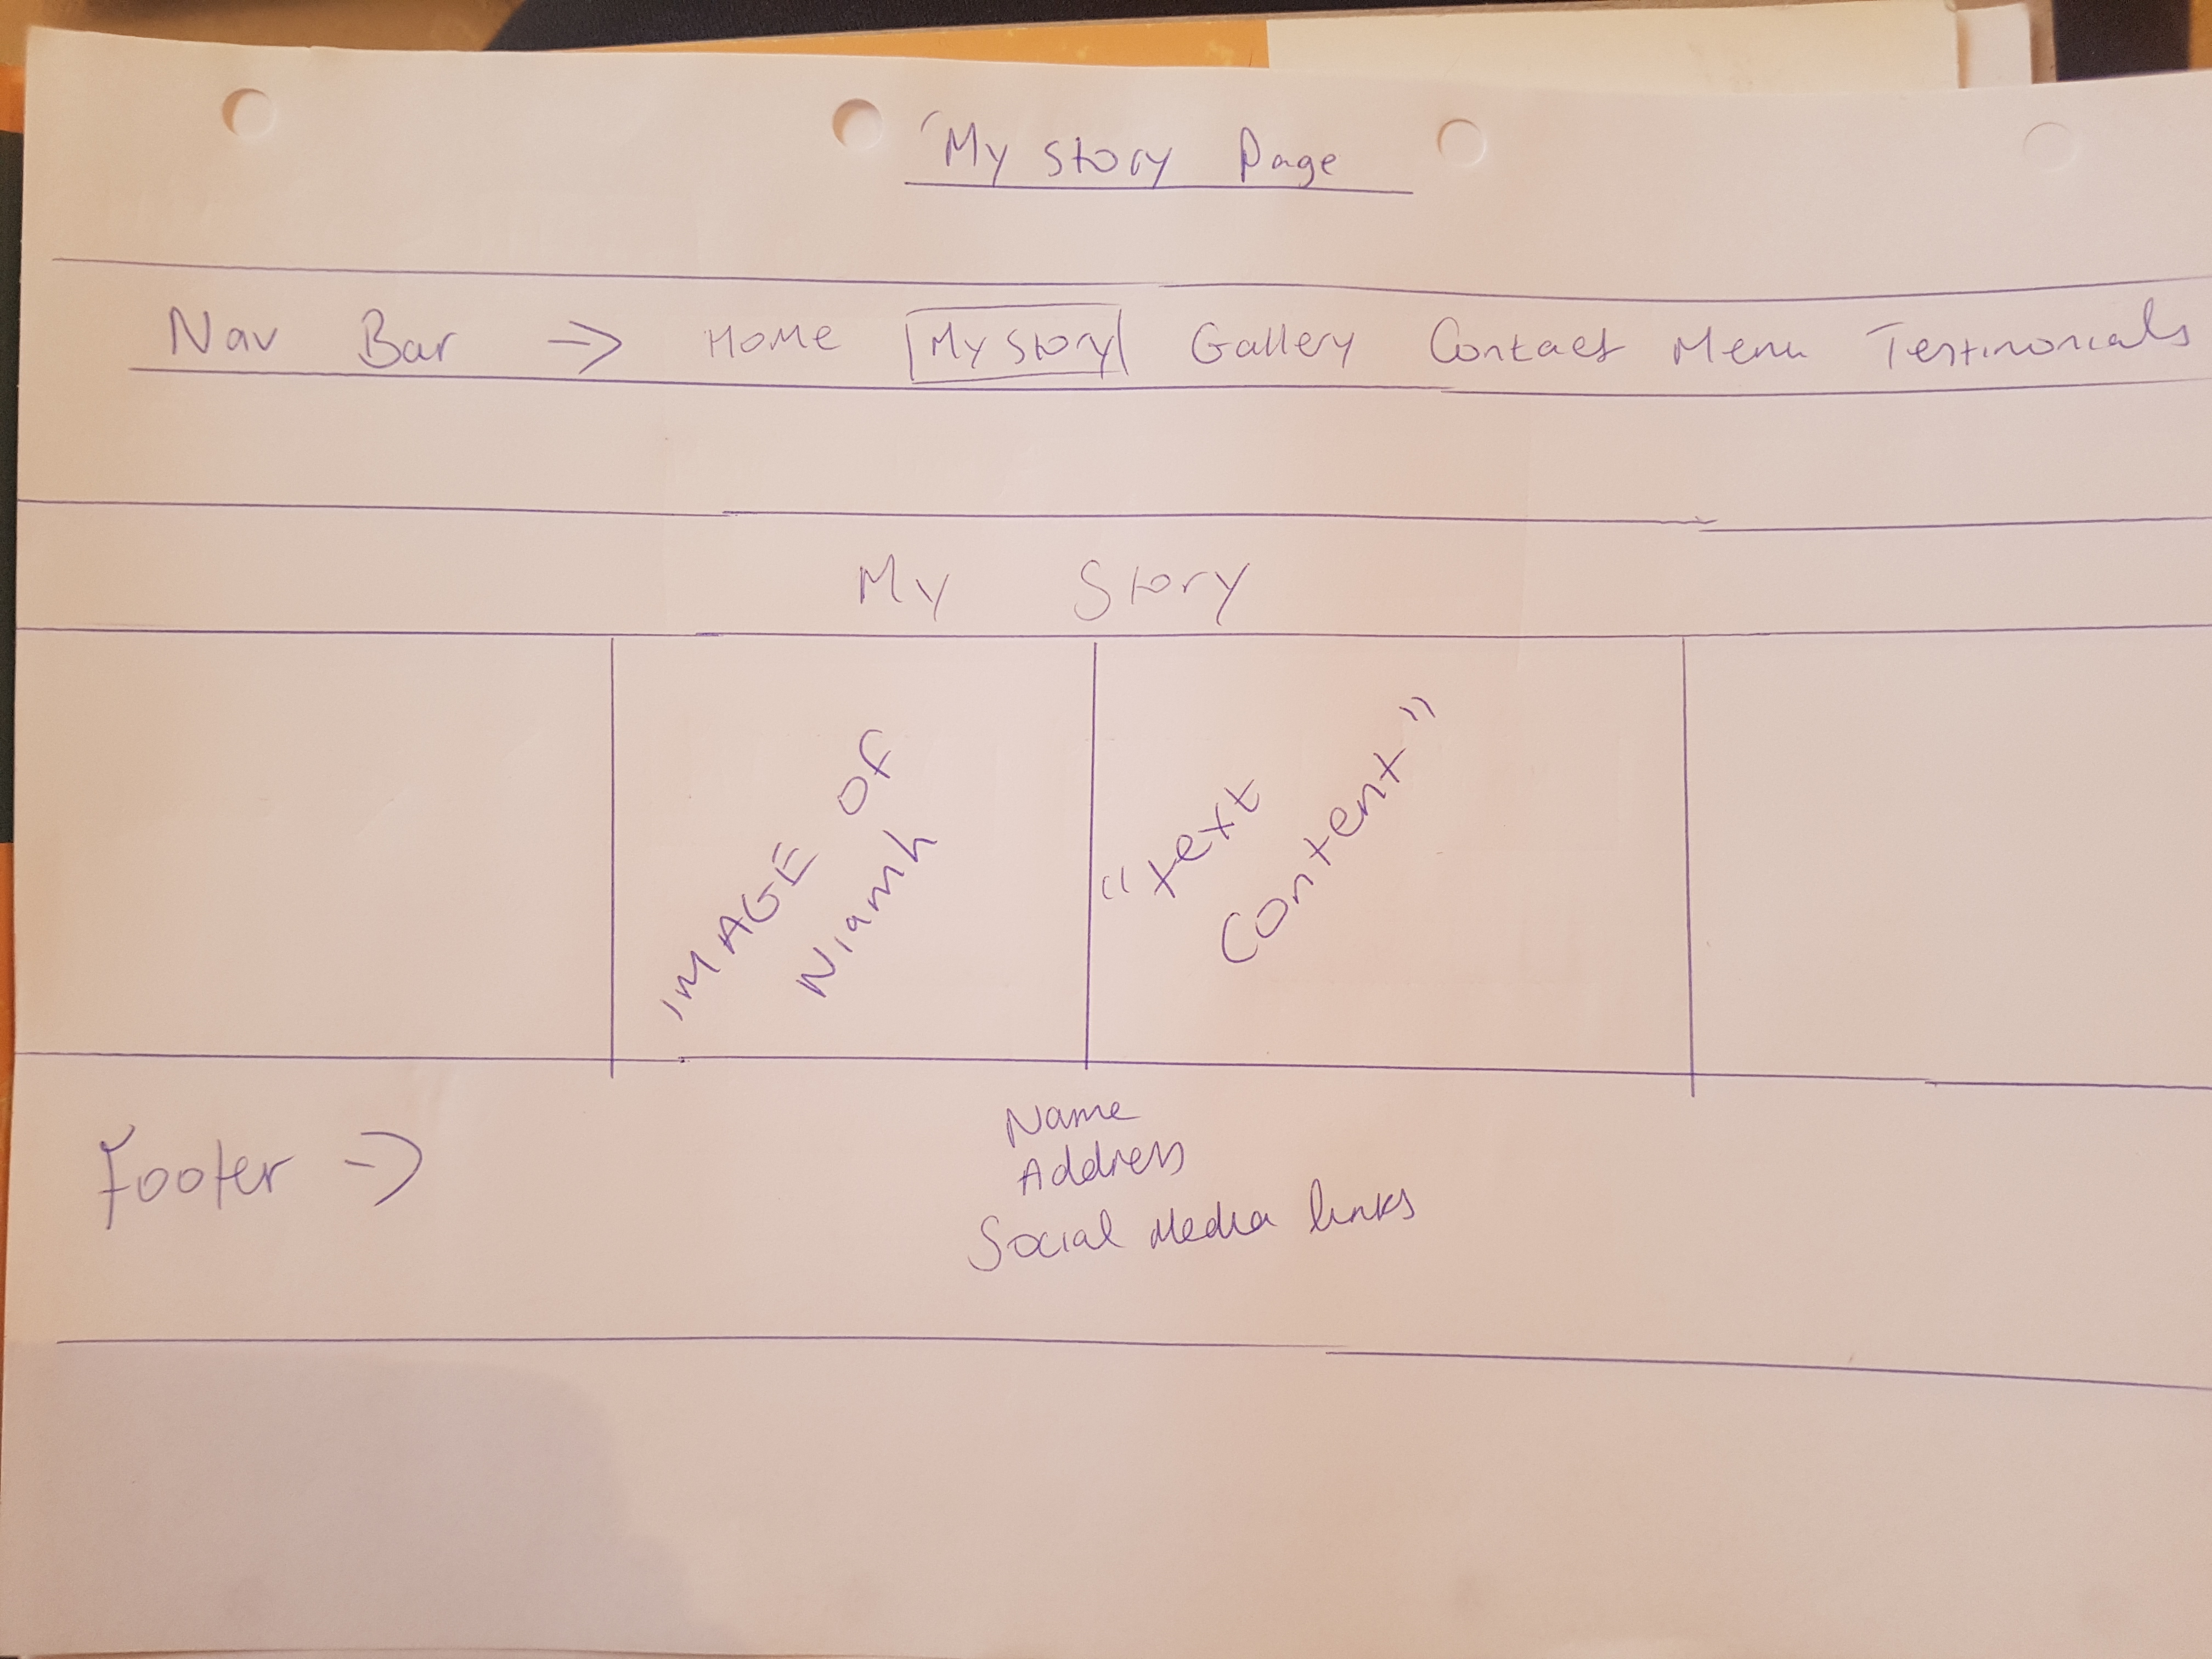 'My Story Page
Nav Bar → Home My Story Gallery Contact Menu Testimonials
My Story
IMAGE OF
Niamh
"Text
Content"
Footer →
Name
Address
Social Media links